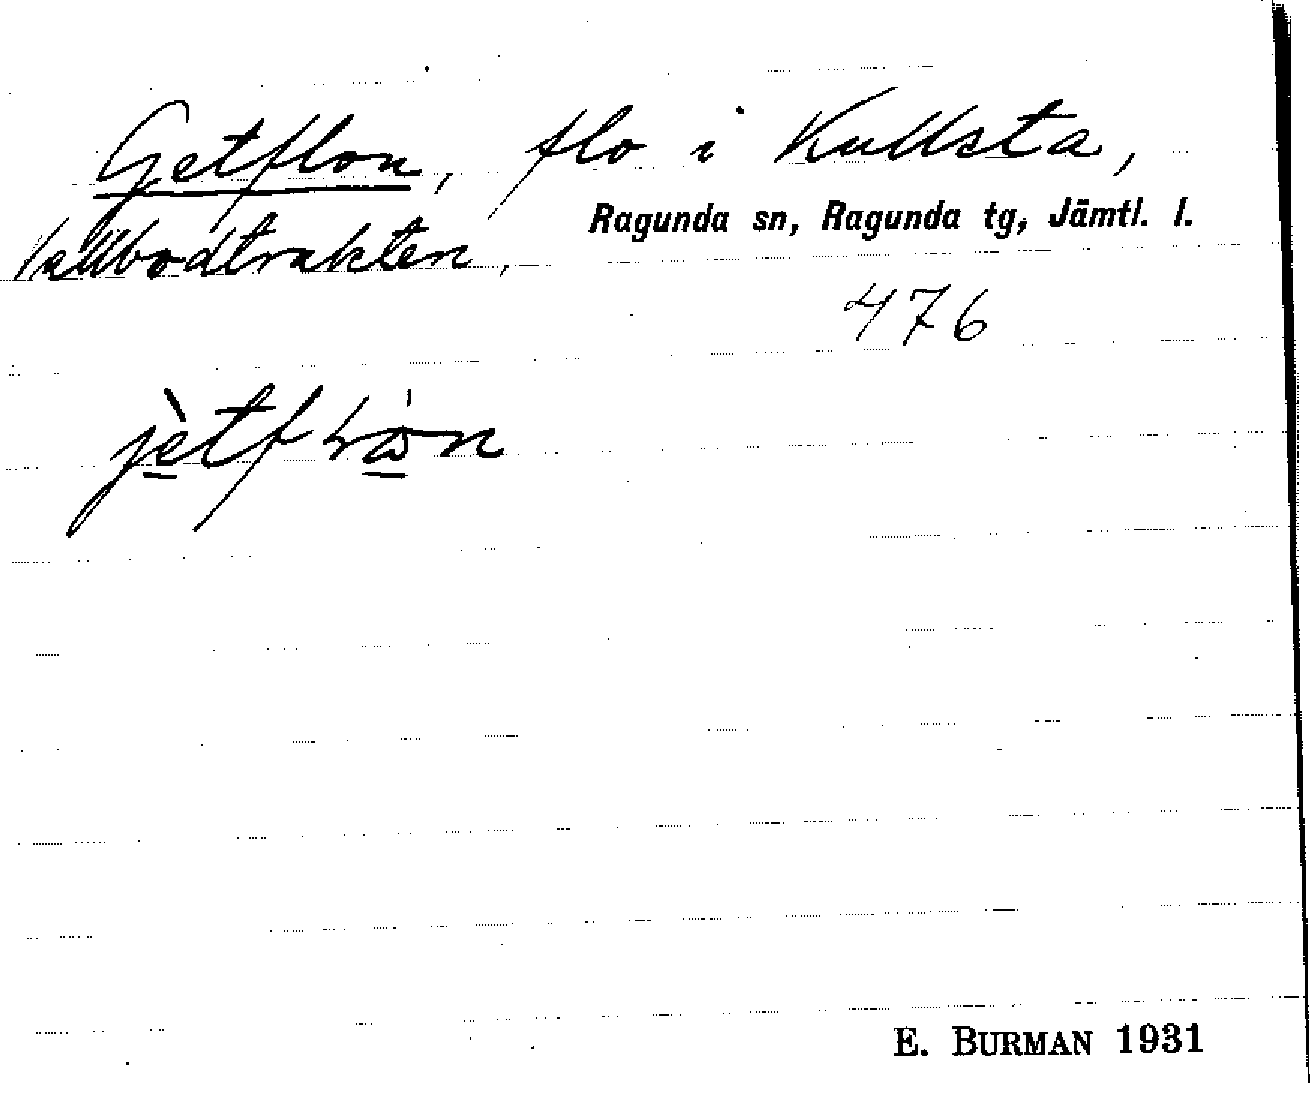 Getflon, flo i Kullsta,
Vallbodtrakten, Ragunda sn, Ragunda tg, Jämtl. l.
476
E. BURMAN 1931